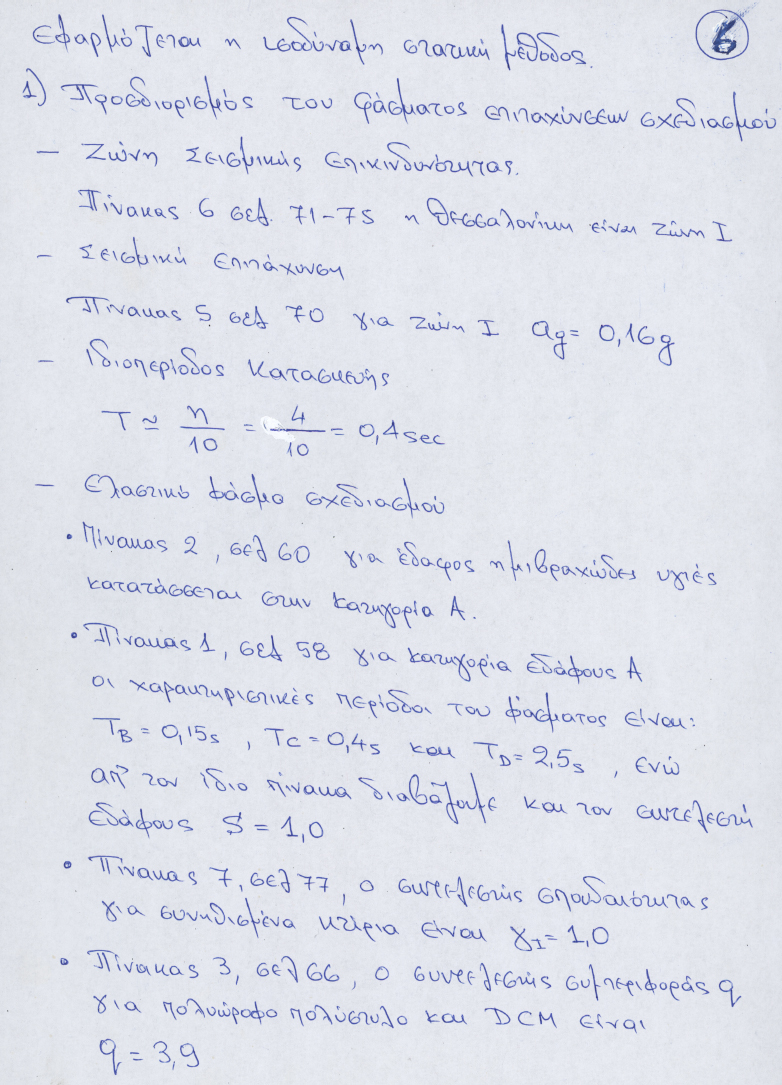 6
Εφαρμόζεται η ισοδύναμη στατική μέθοδος.
1) Προσδιορισμός του φάσματος επιταχύνσεων σχεδιασμού
- Ζώνη Σεισμικής Επικινδυνότητας.
Πίνακας 6 σελ. 71-75 η Θεσσαλονίκη είναι Ζώνη I
- Σεισμική Επιτάχυνση
Πίνακας 5 σελ 70 για Ζώνη I ag = 0,16g
- Ιδιοπερίοδος Κατασκευής
T ≃ n/10 = 4/10 = 0,4 sec
- Ελαστικό φάσμα σχεδιασμού
• Πίνακας 2, σελ 60 για έδαφος ημιβραχώδες υγιές
κατατάσσεται στην κατηγορία A.
• Πίνακας 1, σελ 58 για κατηγορία εδάφους A
οι χαρακτηριστικές περίοδοι του φάσματος είναι:
TB = 0,15s, TC = 0,4s και TD = 2,5s, ενώ
απ' τον ίδιο πίνακα διαβάζουμε και τον συντελεστή
εδάφους S = 1,0
• Πίνακας 7, σελ 77, ο συντελεστής σπουδαιότητας
για συνηθισμένα κτίρια είναι γI = 1,0
• Πίνακας 3, σελ 66, ο συντελεστής συμπεριφοράς q
για πολυώροφο πολύστυλο και DCM είναι
q = 3,9